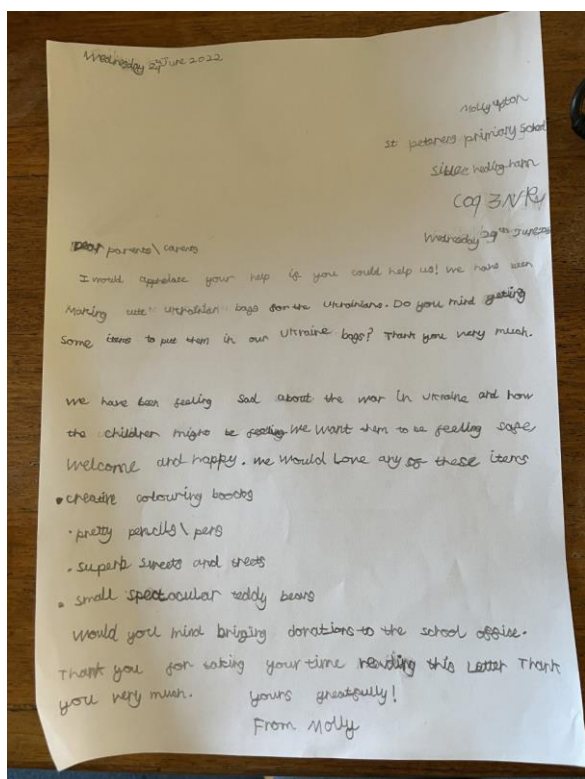 Wednesday 29th June 2022
Molly upton
st peteres primary School
Sible hedingham
CO9 3NRy
Wednesday 29th June
Dear parents\carents
I would appreciate your help if you could help us! we have been
Making cute ukrainian bags for the Ukrainians. Do you mind getting
Some items to put them in our Ukraine bags? Thank you very much.
We have been feeling sad about the war in Ukraine and how
the children might be feeling we want them to be feeling safe
Welcome and happy. we would love any of these items
• creative colouring boocks
• pretty pencils\pens
• superb sweets and treets
• small spectacular teddy bears
Would you mind bringing donations to the school office.
Thank you for taking your time reading this Letter Thank
you very much. yours greatfully!
From Molly